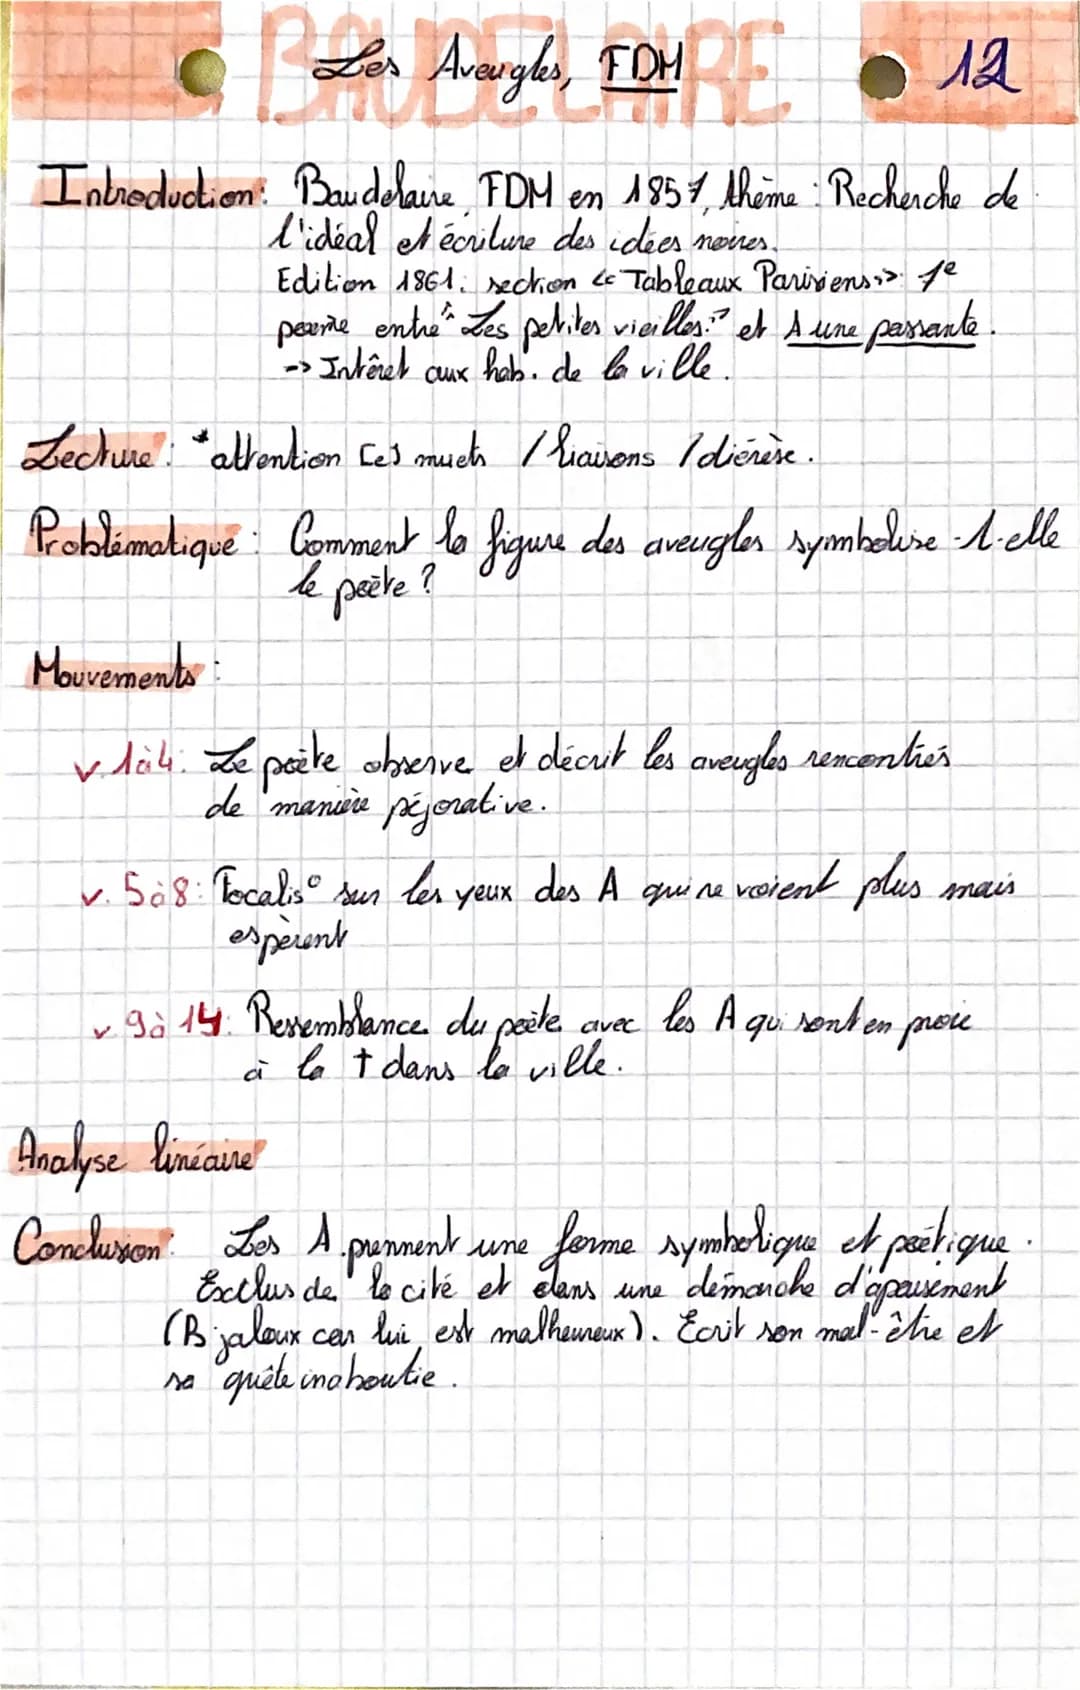 BAUDELAIRE
Les Aveugles, FDM
12
Introduction: Baudelaire, FDM en 1857, thème : Recherche de
l'idéal et écriture des idées noires.
Edition 1861: section << Tableaux Parisiens >> 1e
poème entre "Les petites vieilles" et A une passante.
-> Intérêt aux hab. de la ville.
Lecture : *attention [e] muets / liaisons / diérèse.
Problématique : Comment la figure des aveugles symbolise-t-elle
le poète ?
Mouvements :
v. 1à4: Le poète observe et décrit les aveugles rencontrés
de manière péjorative.
v. 5à8: Focalis° sur les yeux des A qui ne voient plus mais
espèrent
v 9à 14: Ressemblance du poète avec les A qui sont en proie
à la † dans la ville.
Analyse linéaire
Conclusion: Les A. prennent une forme symbolique et poétique.
Exclus de la cité et dans une démarche d'apaisement
(B jaloux car lui est malheureux). Ecrit son mal-être et
sa quête inaboutie.